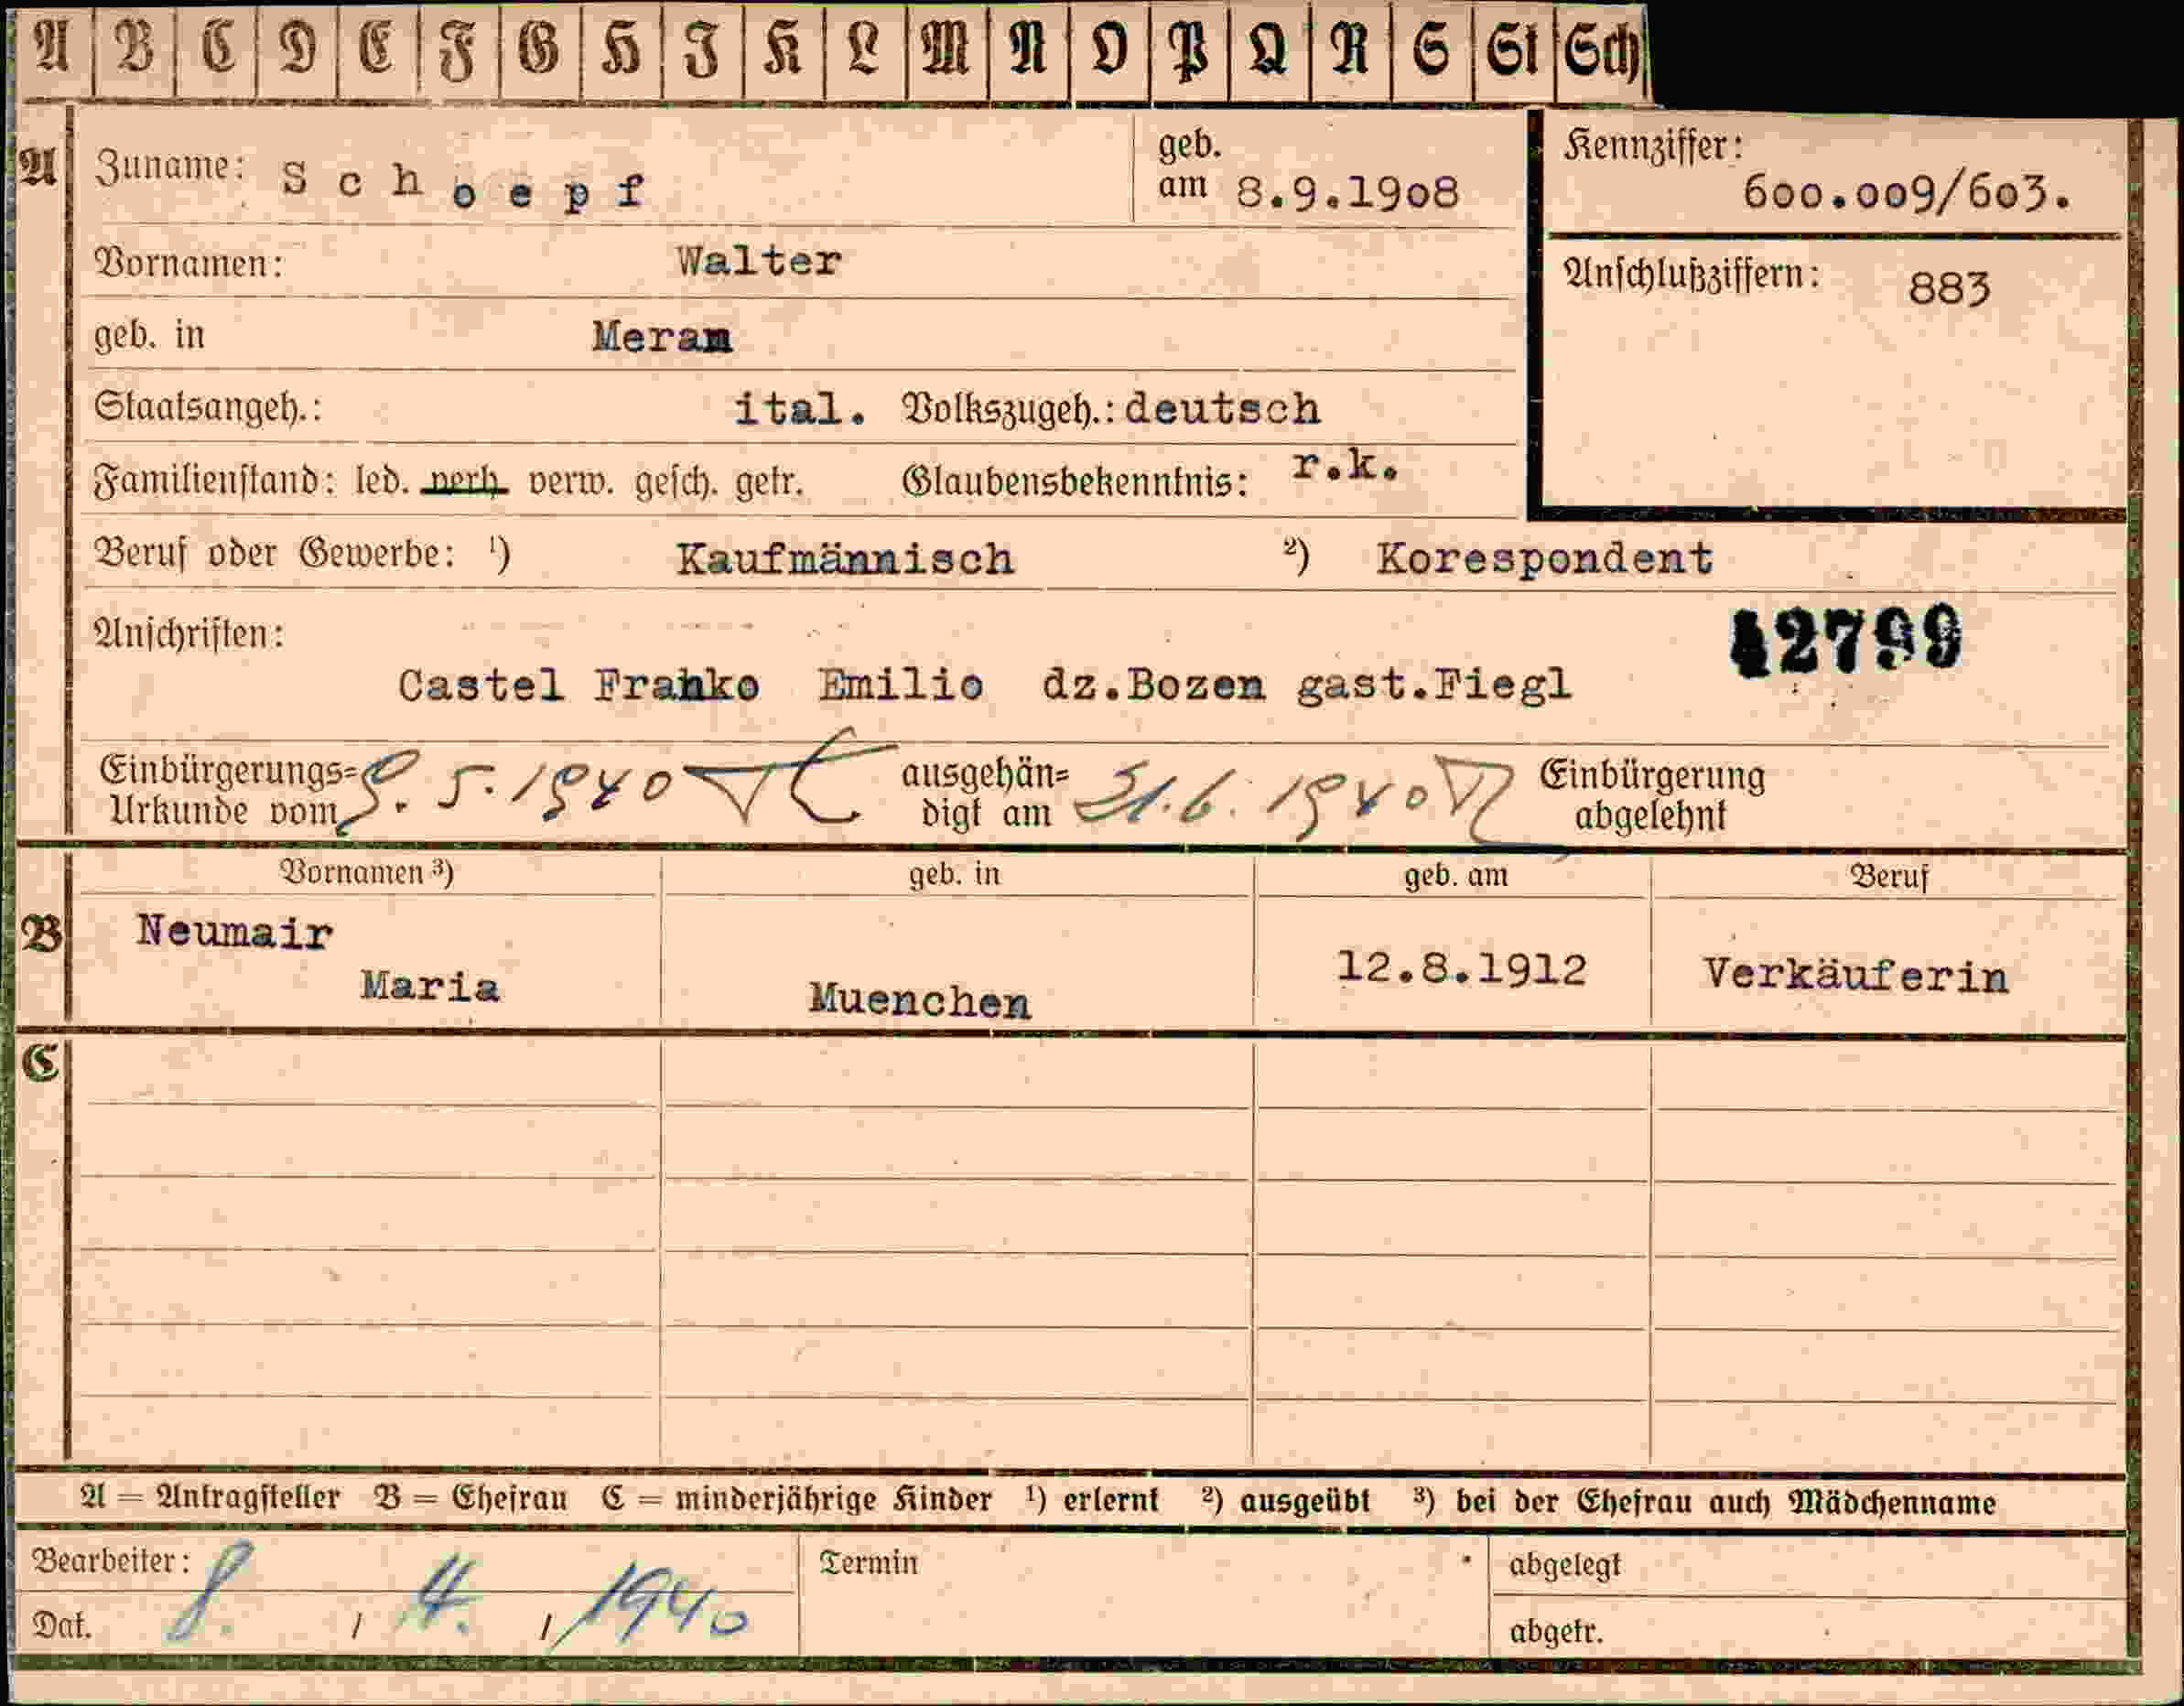 A B C D E F G H J K L M N O P Q R S St Sch
A Zuname: Schoepf geb. am 8.9.1908 Kennziffer: 600.009/603.
Vornamen: Walter Anschlußziffern: 883
geb. in Meran
Staatsangeh.: ital. Volkszugeh.: deutsch
Familienstand: led. verh. verw. gesch. getr. Glaubensbekenntnis: r.k.
Beruf oder Gewerbe: 1) Kaufmännisch 2) Korespondent
Anschriften: 42799
Castel Franko Emilio dz.Bozen gast.Fiegl
Einbürgerungs= ausgehän= Einbürgerung
Urkunde vom 8. 5. 1940 digt am 1940 abgelehnt
Vornamen 3) geb. in geb. am Beruf
B Neumair
Maria Muenchen 12.8.1912 Verkäuferin
C
A = Antragsteller B = Ehefrau C = minderjährige Kinder 1) erlernt 2) ausgeübt 3) bei der Ehefrau auch Mädchenname
Bearbeiter: Termin abgelegt
Dat. 8. / 4. / 1940 abgetr.